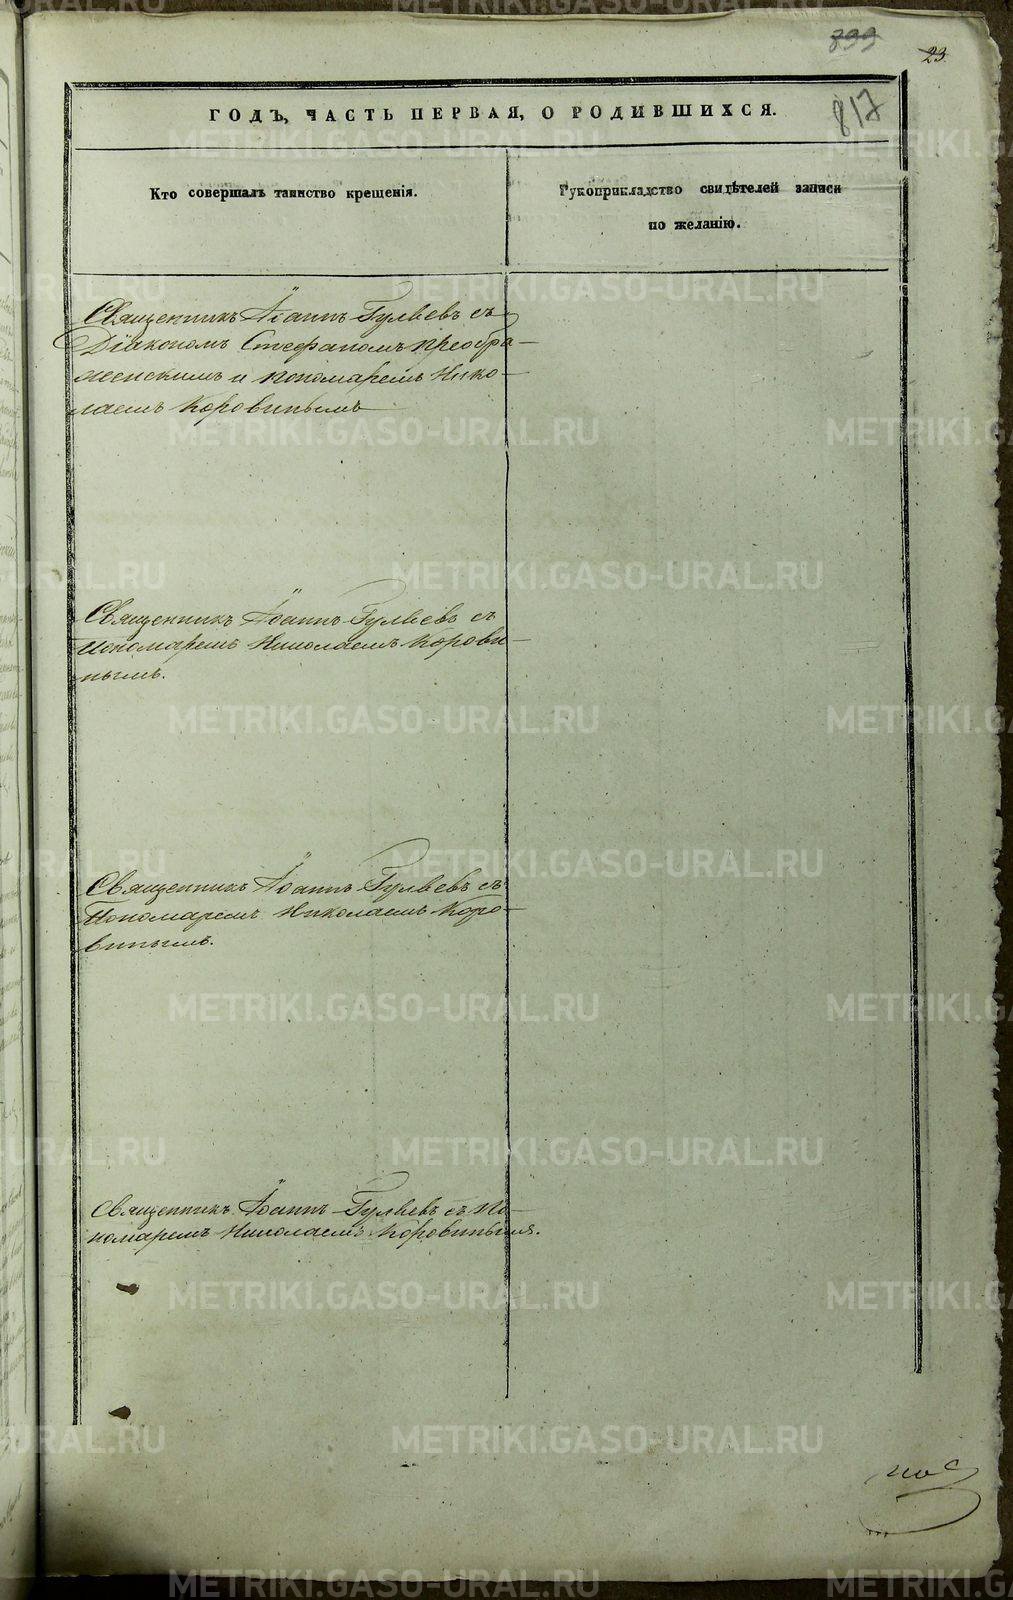 899
23
817
ГОДЪ, ЧАСТЬ ПЕРВАЯ, О РОДИВШИХСЯ.
Кто совершалъ таинство крещенія.
Рукоприкладство свидѣтелей записи
по желанію.
Священникъ Іоаннъ Гуляевъ съ
Діакономъ Стефаномъ Преобра-
женскимъ и пономаремъ Нико-
лаемъ Коровинымъ
Священникъ Іоаннъ Гуляевъ съ
Пономаремъ Николаемъ Корови-
нымъ.
Священникъ Іоаннъ Гуляевъ съ
Пономаремъ Николаемъ Коро-
винымъ.
Священникъ Іоаннъ Гуляевъ съ По-
номаремъ Николаемъ Коровинымъ.
METRIKI.GASO-URAL.RU